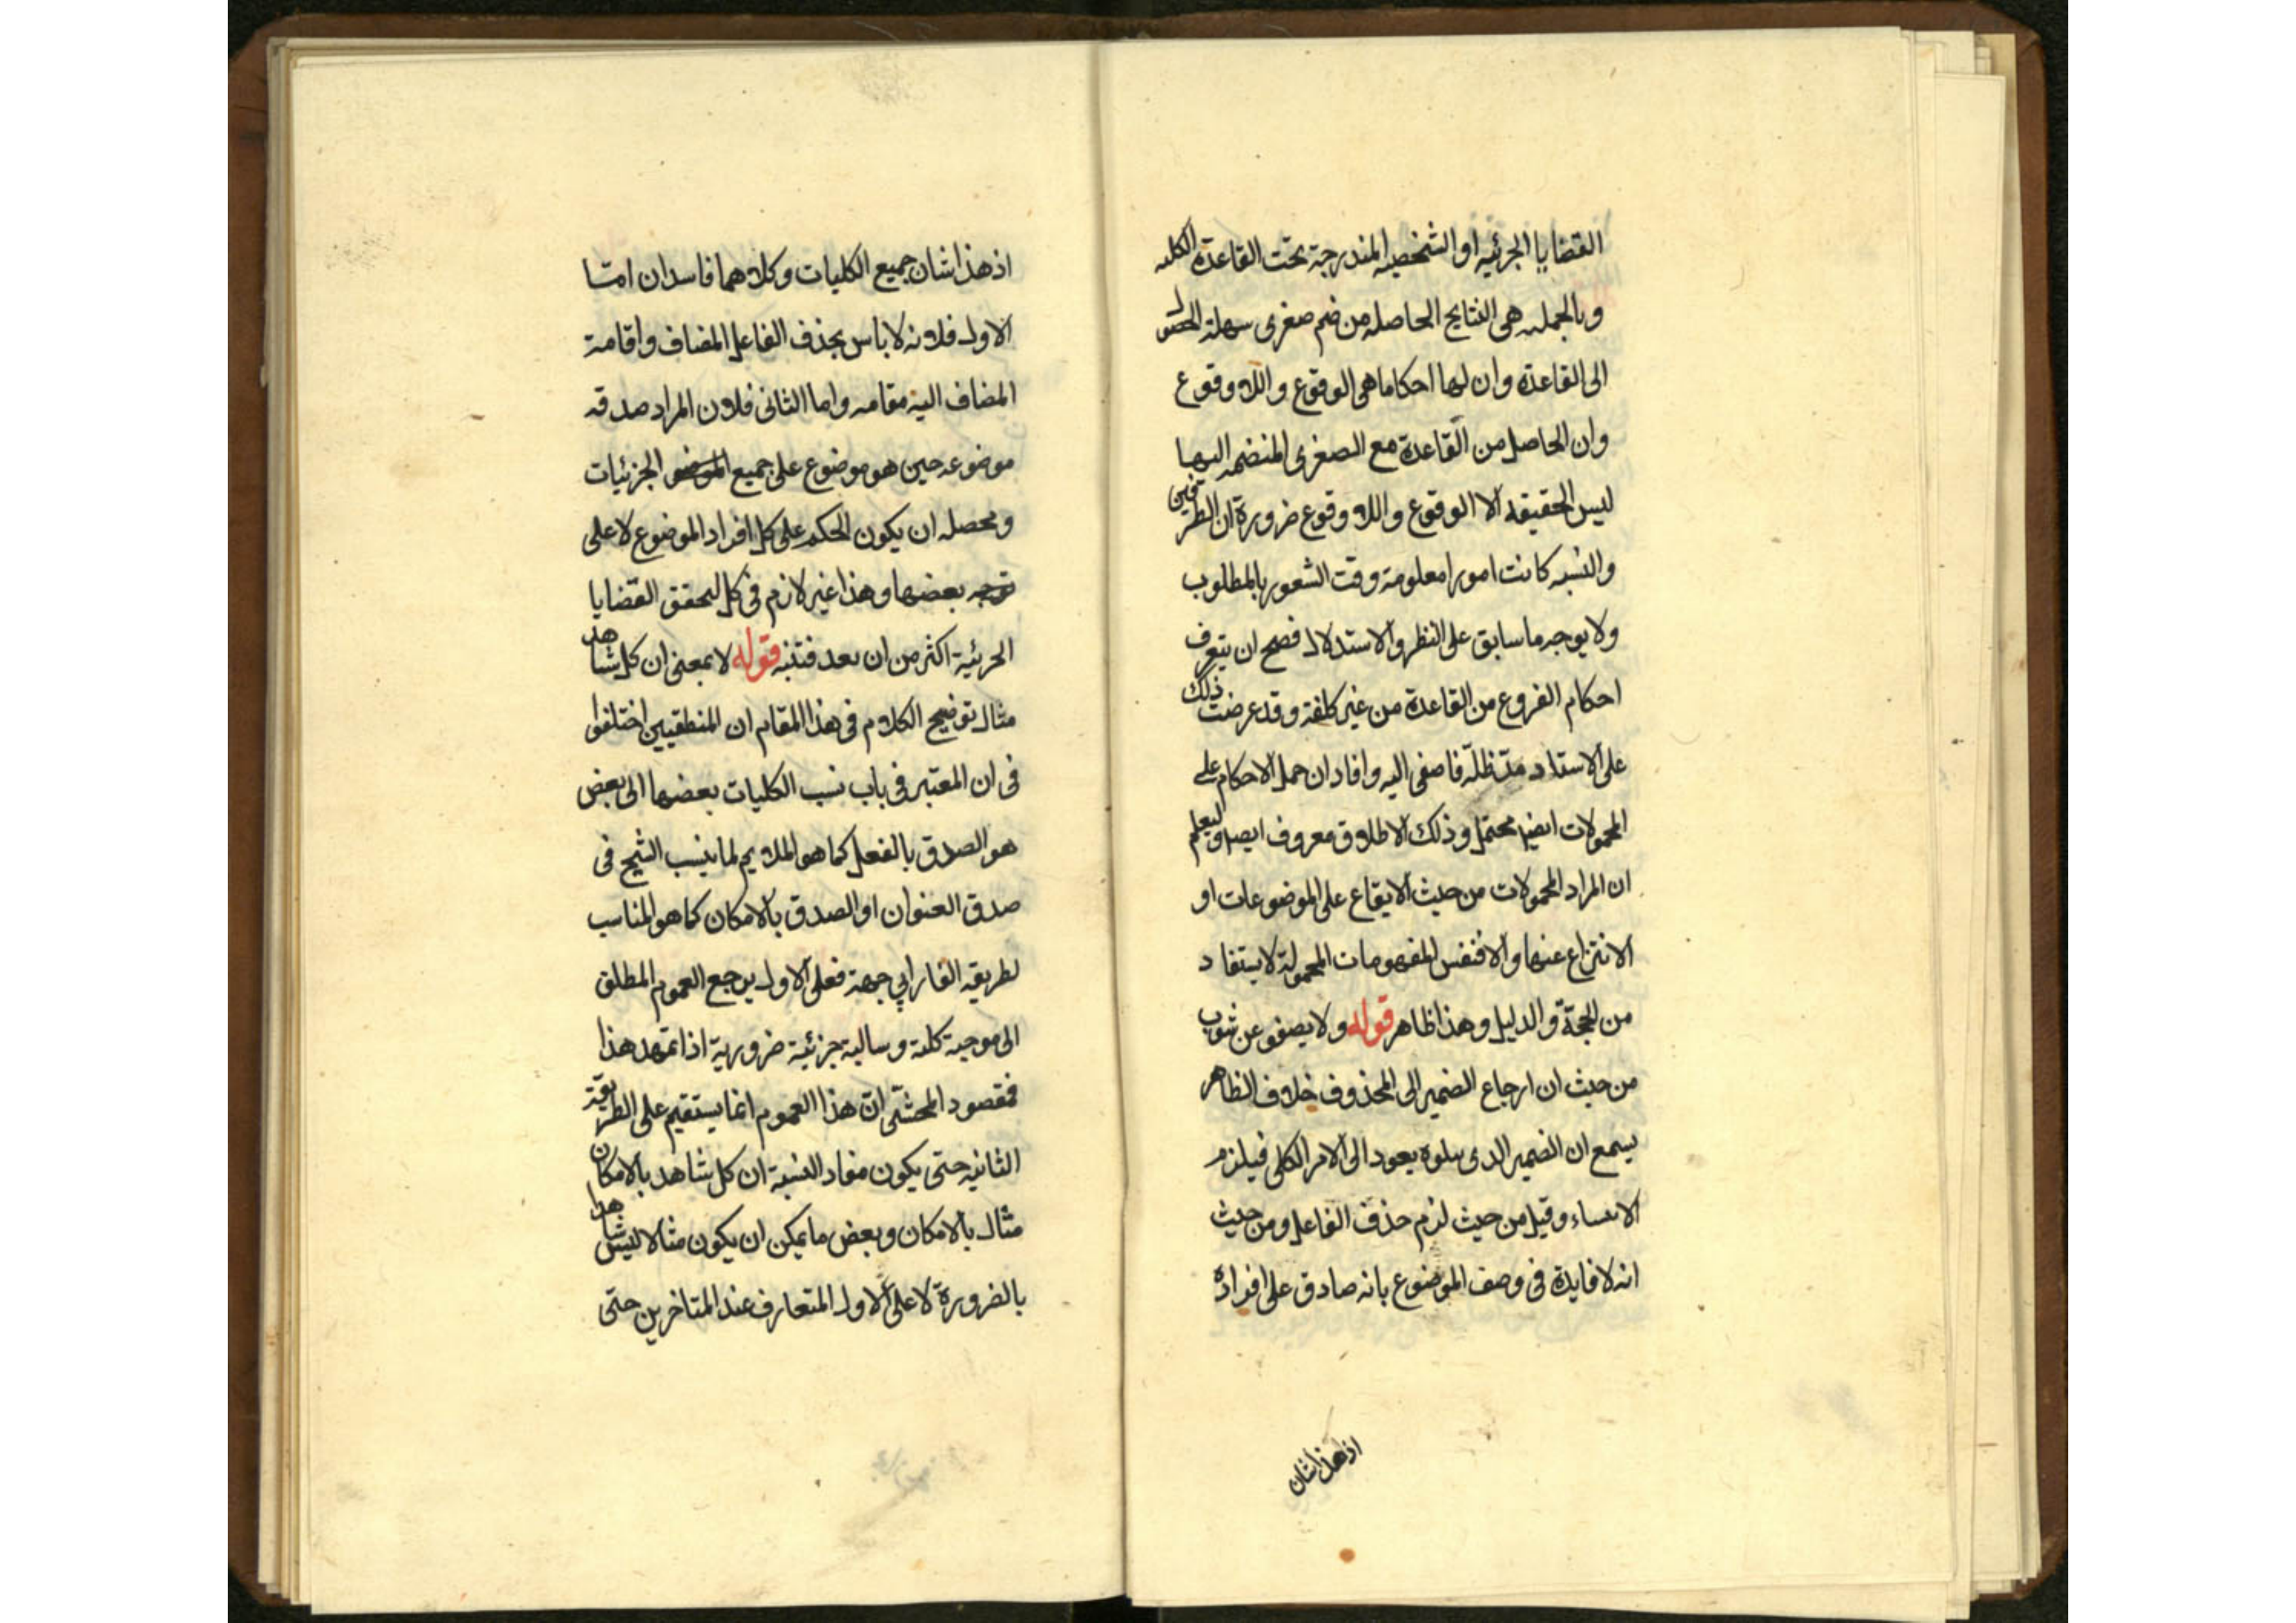 القضايا الجرئيه او الشخصيه المندرجة تحت القاعدة الكليه
وبالجمله هى النتايج الحاصله من ضم صغرى سهلة الحصول
الى القاعدة وان لها احكاما هى الوقوع واللا وقوع
وان الحاصل من القاعدة مع الصغرى المنضمه اليها
ليس الحقيقه الا الوقوع واللا وقوع ضرورة ان الطرفين
والنسبه كانت امورا معلومة وقت الشعور بالمطلوب
ولا يوجه ما سابق على النظر والاستدلال فصح ان يتعرف
احكام الفروع من القاعدة من غير كلفة وقد عرضت ذلك
على الاستاد مد ظله فاصغى اليه وافاد ان حمل الاحكام على
المحمولات ايضا محتمل وذلك الاطلاق معروف ايضا وليعلم
ان المراد المحمولات من حيث الايقاع على الموضوعات او
الانتزاع عنها والا فنفس المفهومات المحمولة لا يستفاد
من الحجة والدليل وهذا ظاهر قوله ولا يصفو عن شوب
من حيث ان ارجاع الضمير الى المحذوف خلاف الظاهر
ان الضمير الدى يتلوه يعود الى الامر الكلى فيلزم
وقيل من حيث لزم حذف الفاعل ومن حيث
انه لا فايدة فى وصف الموضوع بانه صادق على افراده
اذ هذا شان
اذ هذا شان جميع الكليات وكلاهما فاسدان امّا
الاول فلانه لا باس بحذف الفاعل المضاف واقامة
المضاف اليه مقامه واما الثانى فلان المراد صدقه
موضوعه حين هو موضوع على جميع الجزئيات
ومحصله ان يكون الحكم على كل افراد الموضوع لا على
بعضها وهذا غير لازم فى كل لتحقق القضايا
الجرئية اكثر من ان يعد فتنبه قوله لا بمعنى ان كل شاهد
مثال توضيح الكلام فى هذا المقام ان المنطقيين اختلفوا
فى ان المعتبر فى باب نسب الكليات بعضها الى بعض
هو الصدق بالفعل كما هو الملايم لما ينسب الشيخ فى
صدق العنوان او الصدق بالامكان كما هو المناسب
لطريقه الفارابي جهة فعلى الاول يرجع العموم المطلق
الى موجبة كلية وسالبة جزئية ضرورية اذا تمهد هذا
فمقصود المحشى ان هذا العموم انما يستقيم على الطريقة
الثانيه حتى يكون مفاد النسبة ان كل شاهد بالامكان
مثال بالامكان وبعض ما يمكن ان يكون مثالا ليس شاهدا
بالضرورة لا على الاول المتعارف عند المتاخرين حتى